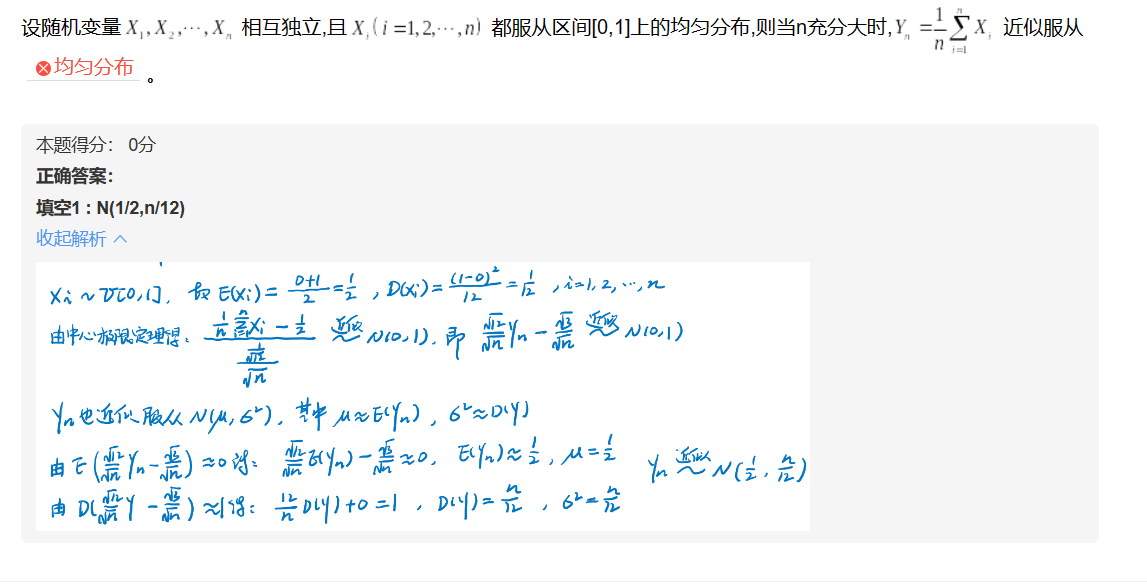 设随机变量 X₁,X₂,⋯,Xₙ 相互独立,且 Xᵢ(i=1,2,⋯,n) 都服从区间[0,1]上的均匀分布,则当n充分大时,Yₙ = 1/n ∑_{i=1}^{n} Xᵢ 近似服从
均匀分布 。
本题得分： 0分
正确答案：
填空1：N(1/2,n/12)
收起解析
Xi ~ U[0,1]. 故 E(Xi) = (0+1)/2 = 1/2 , D(Xi) = (1-0)²/12 = 1/12 , i=1,2,⋯,n
由中心极限定理得: (1/n ∑_{i=1}^{n} Xi - 1/2)/(√(1/12)/√n) 近似 N(0,1). 即 √12/√n Yn - √3/√n 近似 N(0,1)
Yn 也近似服从 N(μ,σ²), 其中 μ≈E(Yn) , σ²≈D(Y)
由 E(√12/√n Yn - √3/√n) ≈0 得: √12/√n E(Yn) - √3/√n ≈0, E(Yn)≈1/2 , μ=1/2
Yn 近似 N(1/2, n/12)
由 D(√12/√n Y - √3/√n) ≈1得: 12/n D(Y)+0=1 , D(Y)=n/12 , σ²=n/12